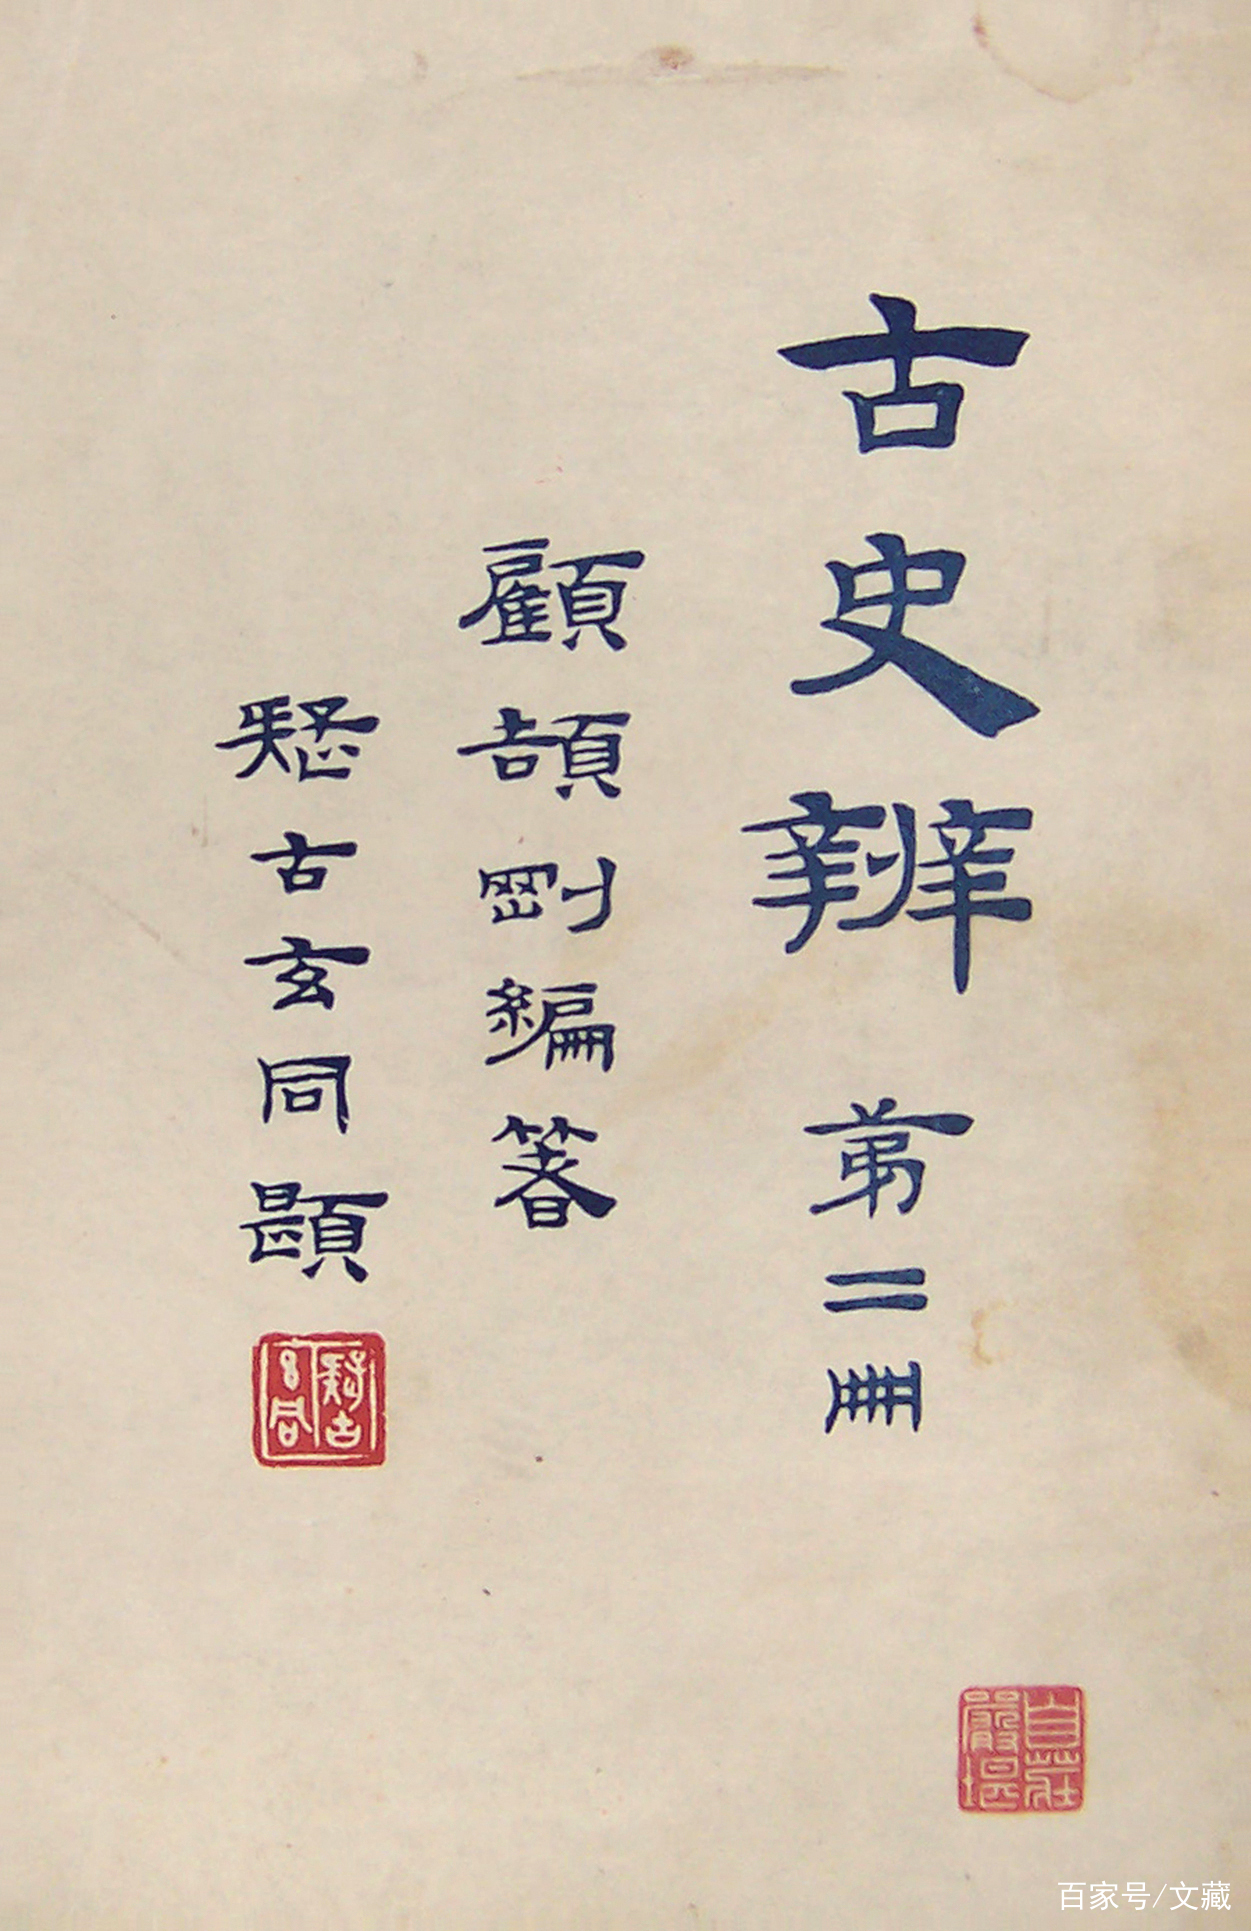 古史辨 第二冊
顧頡剛編著
疑古玄同題
疑古玄同
百家号/文藏